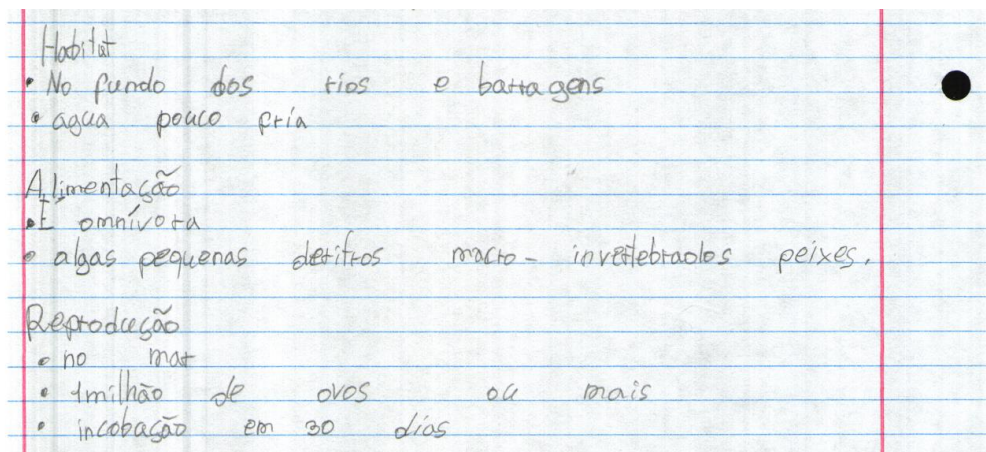 Habitat
• No fundo dos rios e barragens
• água pouco fria
Alimentação
• É omnívora
• algas pequenas detritos macro-invertebrados peixes.
Reprodução
• no mar
• 1milhão de ovos ou mais
• incobação em 30 dias